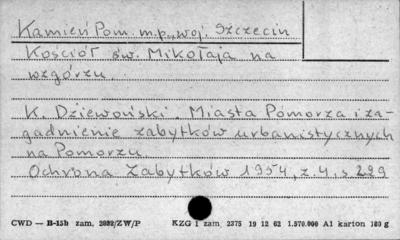 Kamień Pom. m.p., woj. Szczecin
Kościół św. Mikołaja na
wzgórzu
K. Dziewoński. Miasta Pomorza i za-
gadnienie zabytków urbanistycznych
na Pomorzu
Ochrona Zabytków 1954, z 4, s 289
CWD — B-15b zam. 2082/ZW/P KZG 1 zam. 2375 19 12 62 1.570.000 A1 karton 180 g